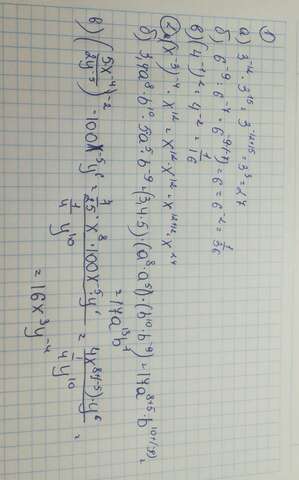 ①
а) 3⁻¹² · 3¹⁵ = 3⁻¹²⁺¹⁵ = 3³ = 27
б) 6⁻⁹ : 6⁻⁷ = 6⁻⁹⁺⁷ = 6 = 6⁻² = 1/36
в) (4⁻¹)² = 4⁻² = 1/16
② а) (x⁻³)⁻⁴ · x¹² = x¹² · x¹² = x¹²⁺¹² = x²⁴
б) 3,4a⁸ · b¹⁰ · 5a⁵ · b⁻⁹ = (3,4·5) · (a⁸·a⁵) · (b¹⁰·b⁻⁹) = 17a⁸⁺⁵ · b¹⁰⁺⁽⁻⁹⁾ =
= 17a¹³b¹
в) (5x⁻⁴/2y⁻⁵)⁻² · 100x⁻⁵y⁶ = 1/25 · x⁸ · 100x⁻⁵ · y⁶ / 1/4 y¹⁰ = 4x⁸⁺⁽⁻⁵⁾ · y⁶ / 1/4 y¹⁰ =
= 16x³y⁻⁴